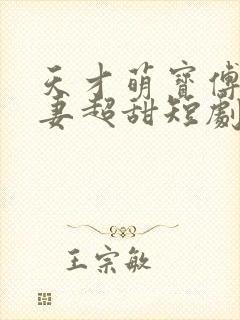 天才萌寶傅
妻超甜短劇
王宗敏